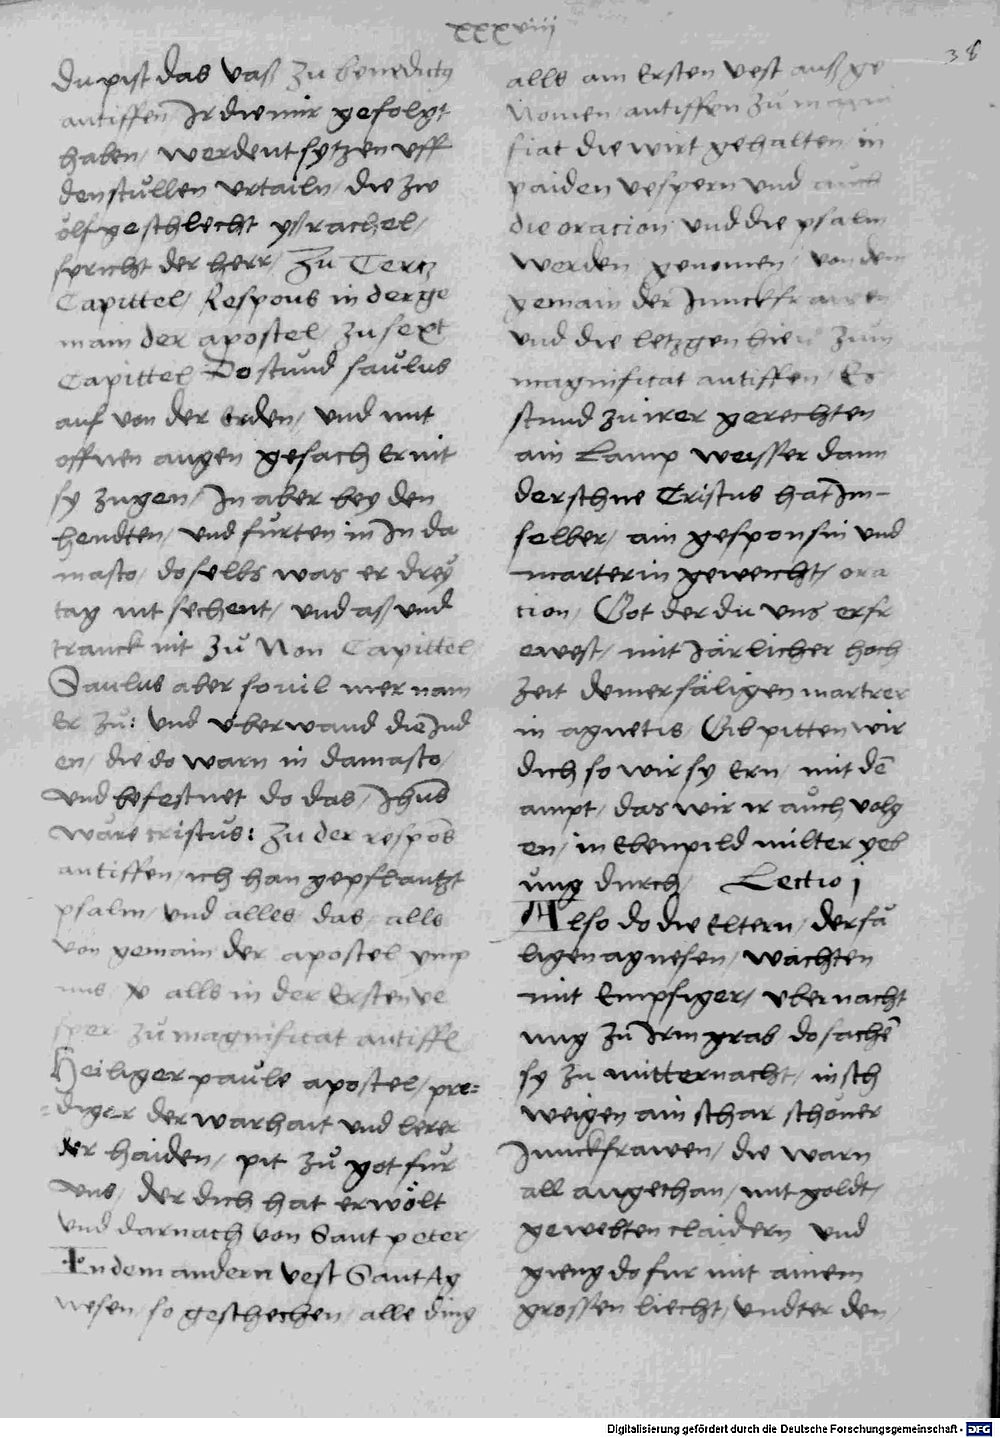 xxxviij
38
du pist das vaß zu benedictus
antiffen Ir die mir gefolgt
haben / werdent sytzen vff
den stüllen vrtailn / die zw
ölf geschlecht ysrachel /
spricht der herr / Zu Tertz
Capittel / Respons in der ge
main der apostel / zu sext
Capittel Do stund saulus
auf von der erden / vnd mit
offnen augen gesach Er nit
sy zugen / In aber bey den
hendten / vnd fürten in In da
masco / doselbs was er drey
tag nit sechent / vnd aß vnd
tranck nit zu Non Capittel
Saulus aber souil mer nam
Er zu: vnd vberwand die Jud
en / die do warn in damasco /
vnd befestnet do das / Jhus
ware cristus: zu der respons
antiffen / ich han gepflantzt
psalm / vnd alles das alls
von gemain der apostel ymp
nus alls in der Ersten ve
sper zu magnificat antiffen
Heiliger paule apostel / pre=
=diger der warhait vnd lerer
der haiden / pit zu got für
vns / der dich hat erwölt
vnd darnach von Sant peter /
In dem andern vest Sant Ag
nesen / so geschechen / alle ding
alls am Ersten vest auß ge
nomen / antiffen zu magni
ficat die wirt gehalten in
paiden vespern vnd auch
die oracion vnd die psalm
werden genomen / von dem
gemain der Junckfrawen
und die letzgen hie zum
magnificat antiffen / Es
stund zu irer gerechten
ain Lamp weisser dann
der schne Cristus hat Im-
selber / ain gesponsin vnd
marterin geweicht / ora
cion / Got der du vns erfr
ewest / mit Järlicher hoch
zeit deiner säligen martrer
in agnetis / Gib pitten wir
dich so wir sy Ern / mit dē
ampt / das wir ir auch volg
en / in Ebenpild milter yeb
ung durch / Lectio j
Also do die Eltern / der sä
ligen agnesen / wachten
mit Empsiger / vbernacht
ung zu Irm grab do sachē
sy zu mitternacht / in sch
weigen ain schar schöner
Junckfrawen / die warn
all angethan / mit goldt /
gewebten claidern vnd
gieng do für mit ainem
grossen liecht / vndter den /
Digitalisierung gefördert durch die Deutsche Forschungsgemeinschaft - DFG